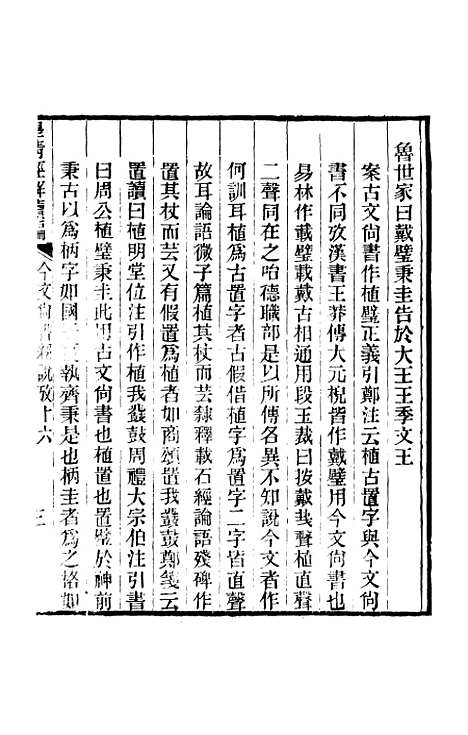 魯世家曰戴璧秉圭告於大王王季文王
案古文尚書作植璧正義引鄭注云植古置字與今文尚
書不同攷漢書王莽傳大元棿皆作戴璧用今文尚書也
易林作載璧載戴古相通用段玉裁曰按戴𢦏聲植直聲
二聲同在之咍德職部是以所傳各異不知說今文者作
何訓耳植爲古置字者古假借植字爲置字二字皆直聲
故耳論語微子篇植其杖而芸隸釋載石經論語殘碑作
置其杖而芸又有假置爲植者如商頌置我鼗鼓鄭箋云
置讀曰植明堂位注引作植我鼗鼓周禮大宗伯注引書
曰周公植璧秉圭此用古文尚書也植置也置璧於神前
秉古以爲柄字如國執齊秉是也柄圭者爲之格如
皇清經解續編 今文尚書經說攷十六 三